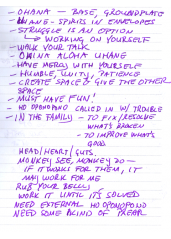 - OHANA - BASE, GROUNDPLATE
UHANE - SPIRITS IN ENVELOPES
- STRUGGLE IS AN OPTION
- WORKING ON YOURSELF
- WALK YOUR TALK
- ALOHA UHANE
- HAVE MERCY WITH YOURSELF
- HUMBLE, UNITY, PATIENCE
- CREATE SPACE & GIVE THE OTHER
SPACE
- MUST HAVE FUN!
- HO OPONOPONO CALLED IN W/ TROUBLE
- IN THE FAMILY - TO FIX/RESOLVE
WHAT'S BROKEN
- TO IMPROVE WHAT'S
GOOD
HEAD/HEART/GUTS.
MONKEY SEE, MONKEY DO -
IF IT WORKS FOR THEM, IT
MAY WORK FOR ME
RUB YOUR BELLY
WORK IT UNTIL IT'S SOLVED
NEED EXTERNAL HO OPONOPONO
NEED SOME KIND OF